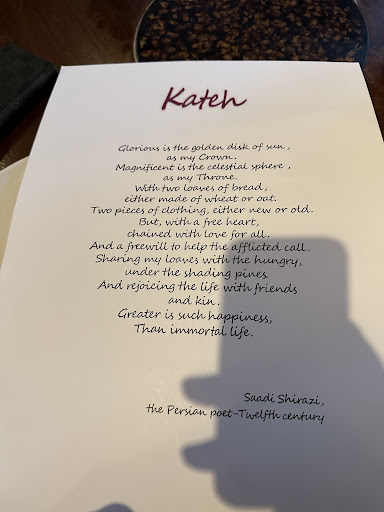 Kateh
Glorious is the golden disk of sun,
as my Crown.
Magnificent is the celestial sphere,
as my Throne.
With two loaves of bread,
either made of wheat or oat.
Two pieces of clothing, either new or old.
But, with a free heart,
chained with love for all.
And a freewill to help the afflicted call.
Sharing my loaves with the hungry,
under the shading pines.
And rejoicing the life with friends
and kin.
Greater is such happiness,
Than immortal life.
Saadi Shirazi,
the Persian poet-Twelfth century